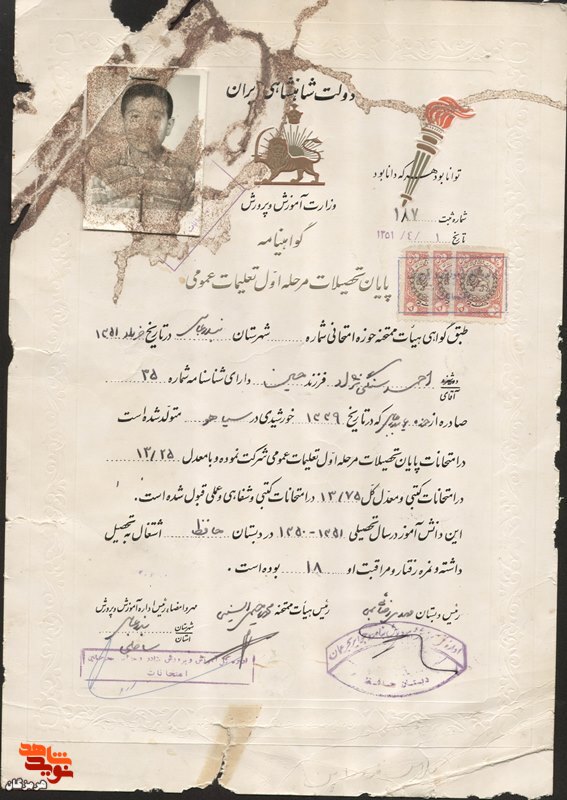 دولت شاهنشاهی ایران
توانا بود هر که دانا بود
وزارت آموزش و پرورش
شماره ثبت ۱۸۷
تاریخ ۱ /۴/ ۱۳۵۱
گواهینامه
پایان تحصیلات مرحله اول تعلیمات عمومی
طبق گواهی هیأت ممتحنه حوزه امتحانی شماره شهرستان بندرعباس در تاریخ خرداد ۱۳۵۱
دوشیزه
آقای احمد سنگی نژاد فرزند حسین دارای شناسنامه شماره ۳۵
صادره از که در تاریخ ۱۳۳۹ خورشیدی در سیاهو متولد شده است
در امتحانات پایان تحصیلات مرحله اول تعلیمات عمومی شرکت نموده و با معدل ۱۳/۲۵
در امتحانات کتبی و معدل کل ۱۳/۷۵ در امتحانات کتبی و شفاهی و عملی قبول شده است.
این دانش آموز در سال تحصیلی ۱۳۵۱-۱۳۵۰ در دبستان حافظ اشتغال به تحصیل
داشته و نمره رفتار و مراقبت او ۱۸ بوده است.
رئیس دبستان
رئیس هیأت ممتحنه
مهر و امضاء رئیس اداره آموزش و پرورش
شهرستان
استان
بندرعباس
ساحلی
امتحانات
دبستان حافظ
نوید شاهد
هرمزگان